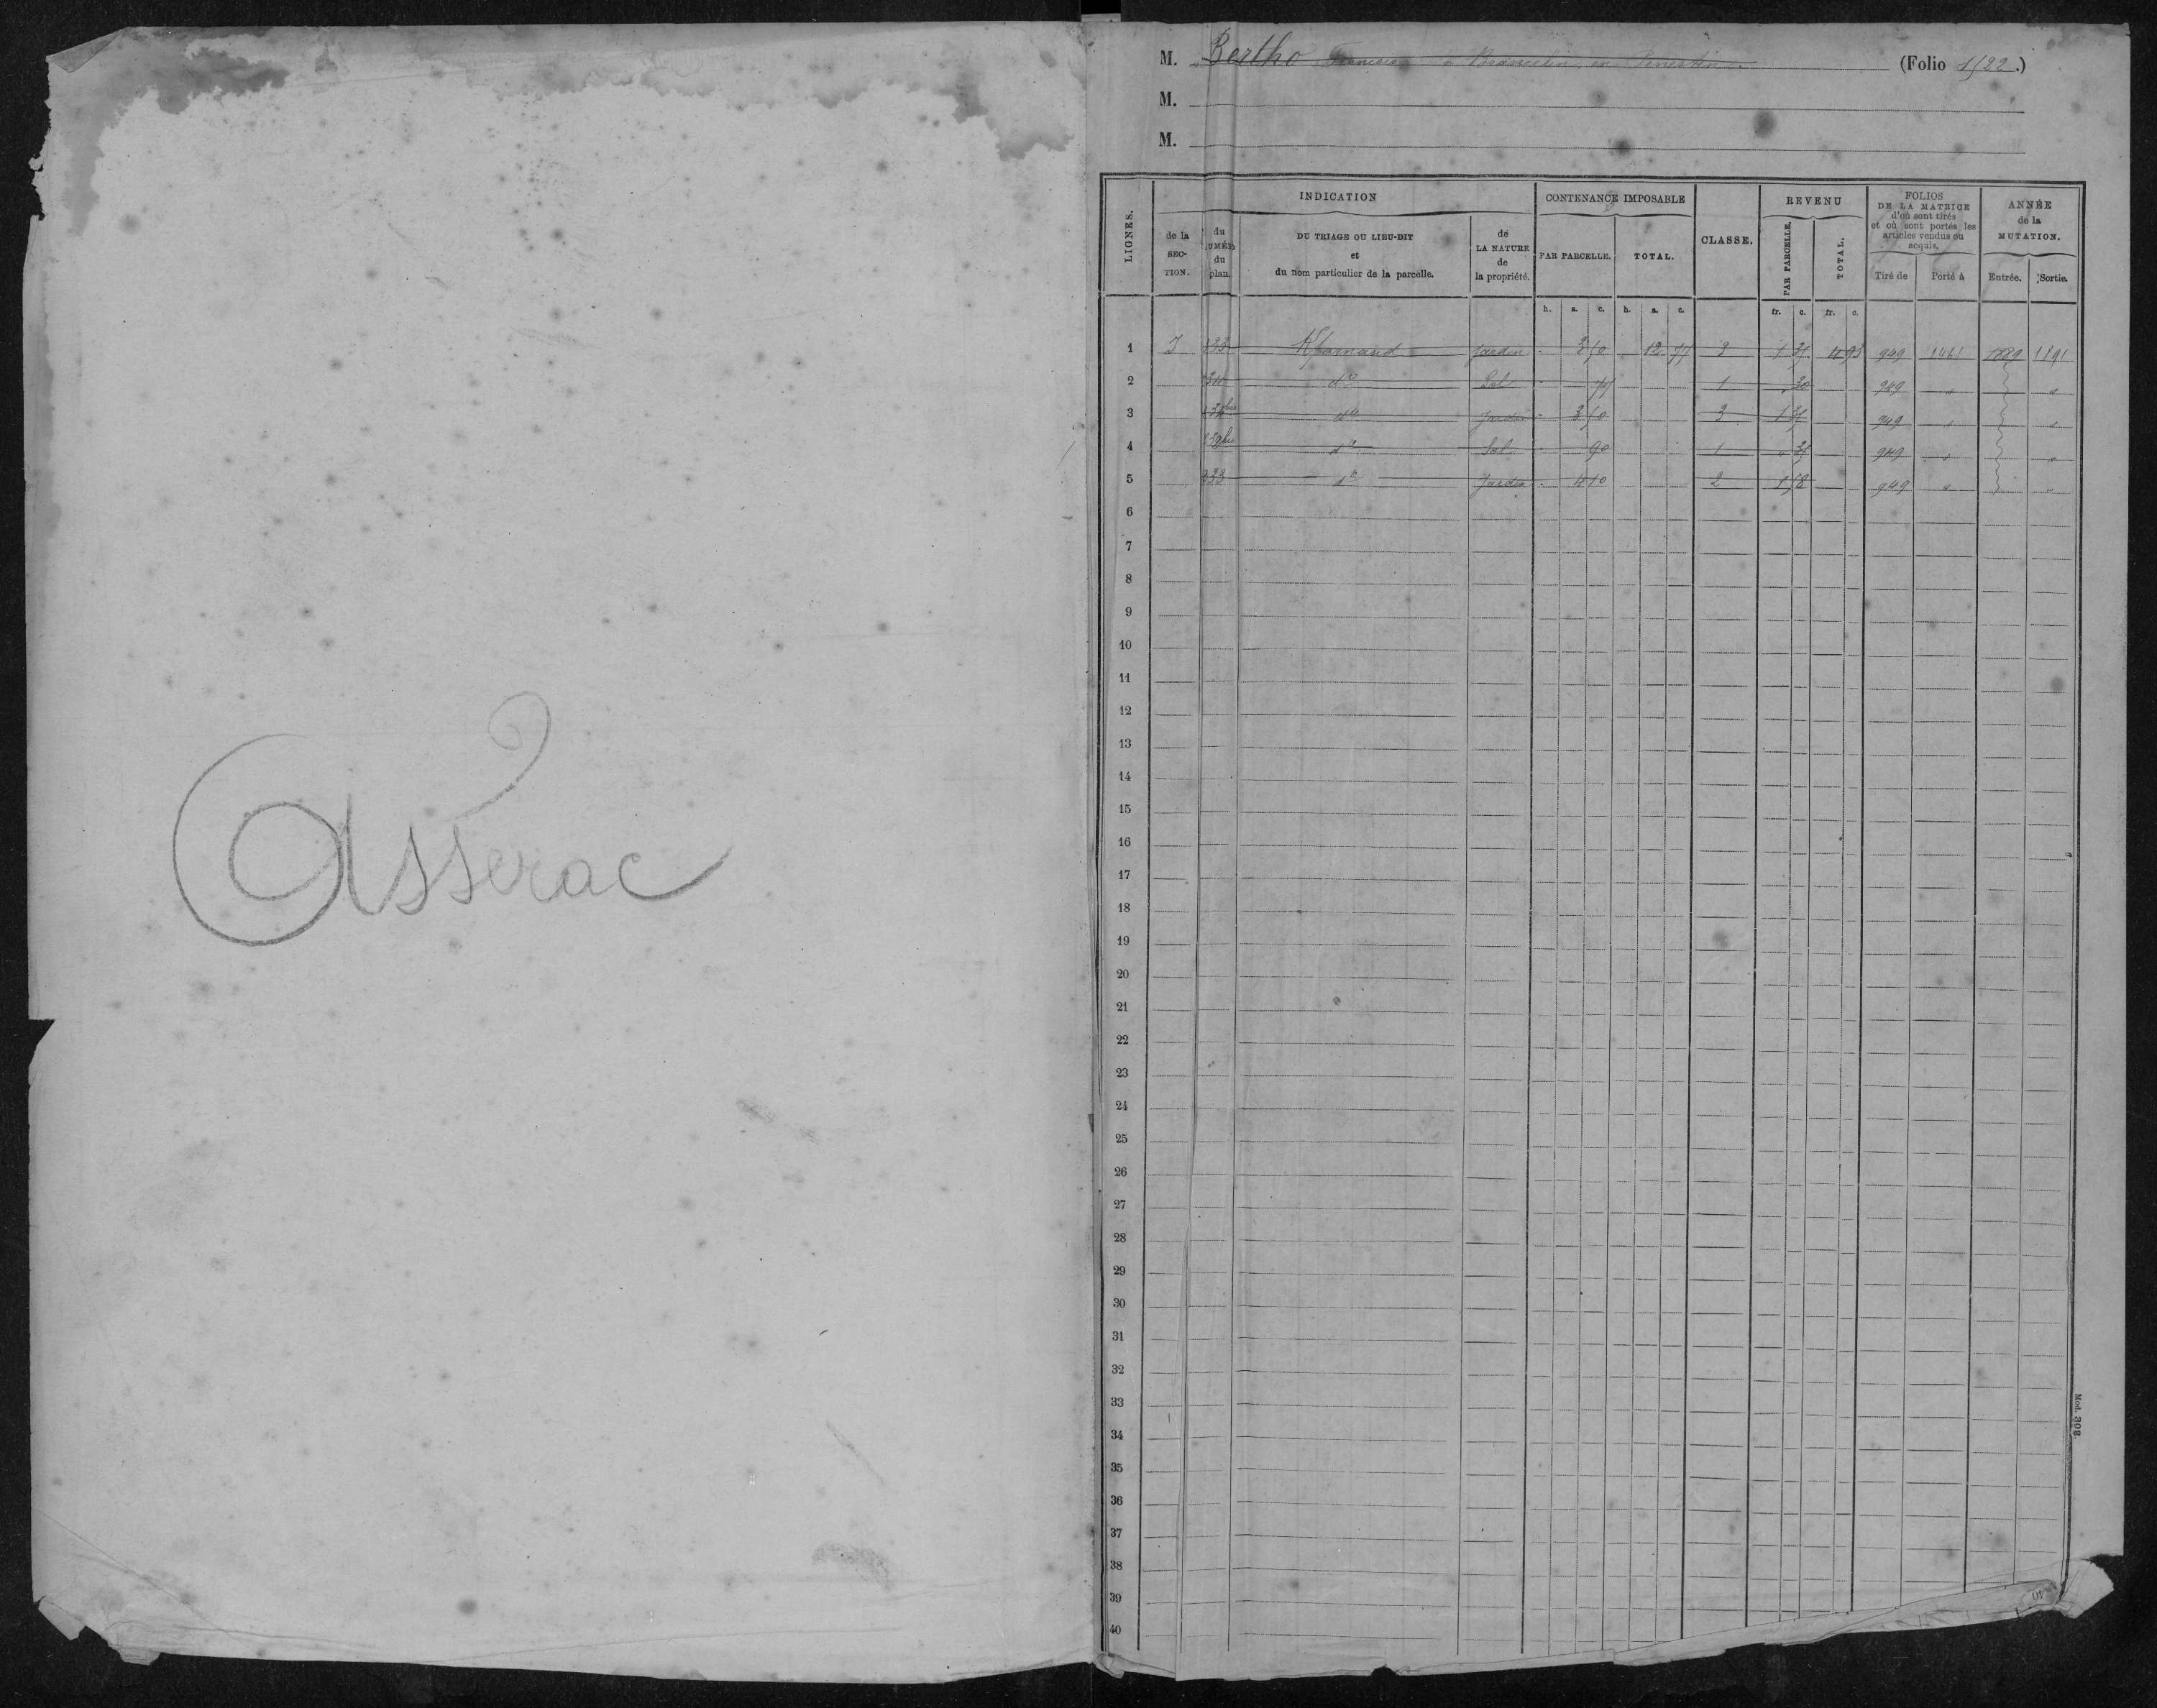 Asserac
M. Bertho François à en (Folio 1522.)
M.
M.
LIGNES.
INDICATION
CONTENANCE IMPOSABLE
CLASSE.
REVENU
FOLIOS
DE LA MATRICE
d'où sont tirés
et où sont portés les
articles vendus ou
acquis.
ANNÉE
de la
MUTATION.
de la
SEC-
TION.
du
NUMÉRO
du
plan.
DU TRIAGE OU LIEU-DIT
et
du nom particulier de la parcelle.
de
LA NATURE
de
la propriété.
PAR PARCELLE.
TOTAL.
PAR PARCELLE.
TOTAL.
Tiré de
Porté à
Entrée.
Sortie.
h. a. c. h. a. c. fr. c. fr. c.
1 Jardin 3 50 12 77 3 1 4 93 949 1461 1889 1891
2 do Sol 77 1 " 30 949 " "
3 do Jardin 3 50 3 1 949 " "
4 do Sol 90 1 " 949 " "
5 do Jardin 2 1 58 949 " "
6
7
8
9
10
11
12
13
14
15
16
17
18
19
20
21
22
23
24
25
26
27
28
29
30
31
32
33
34
35
36
37
38
39
40
Mod. 302.